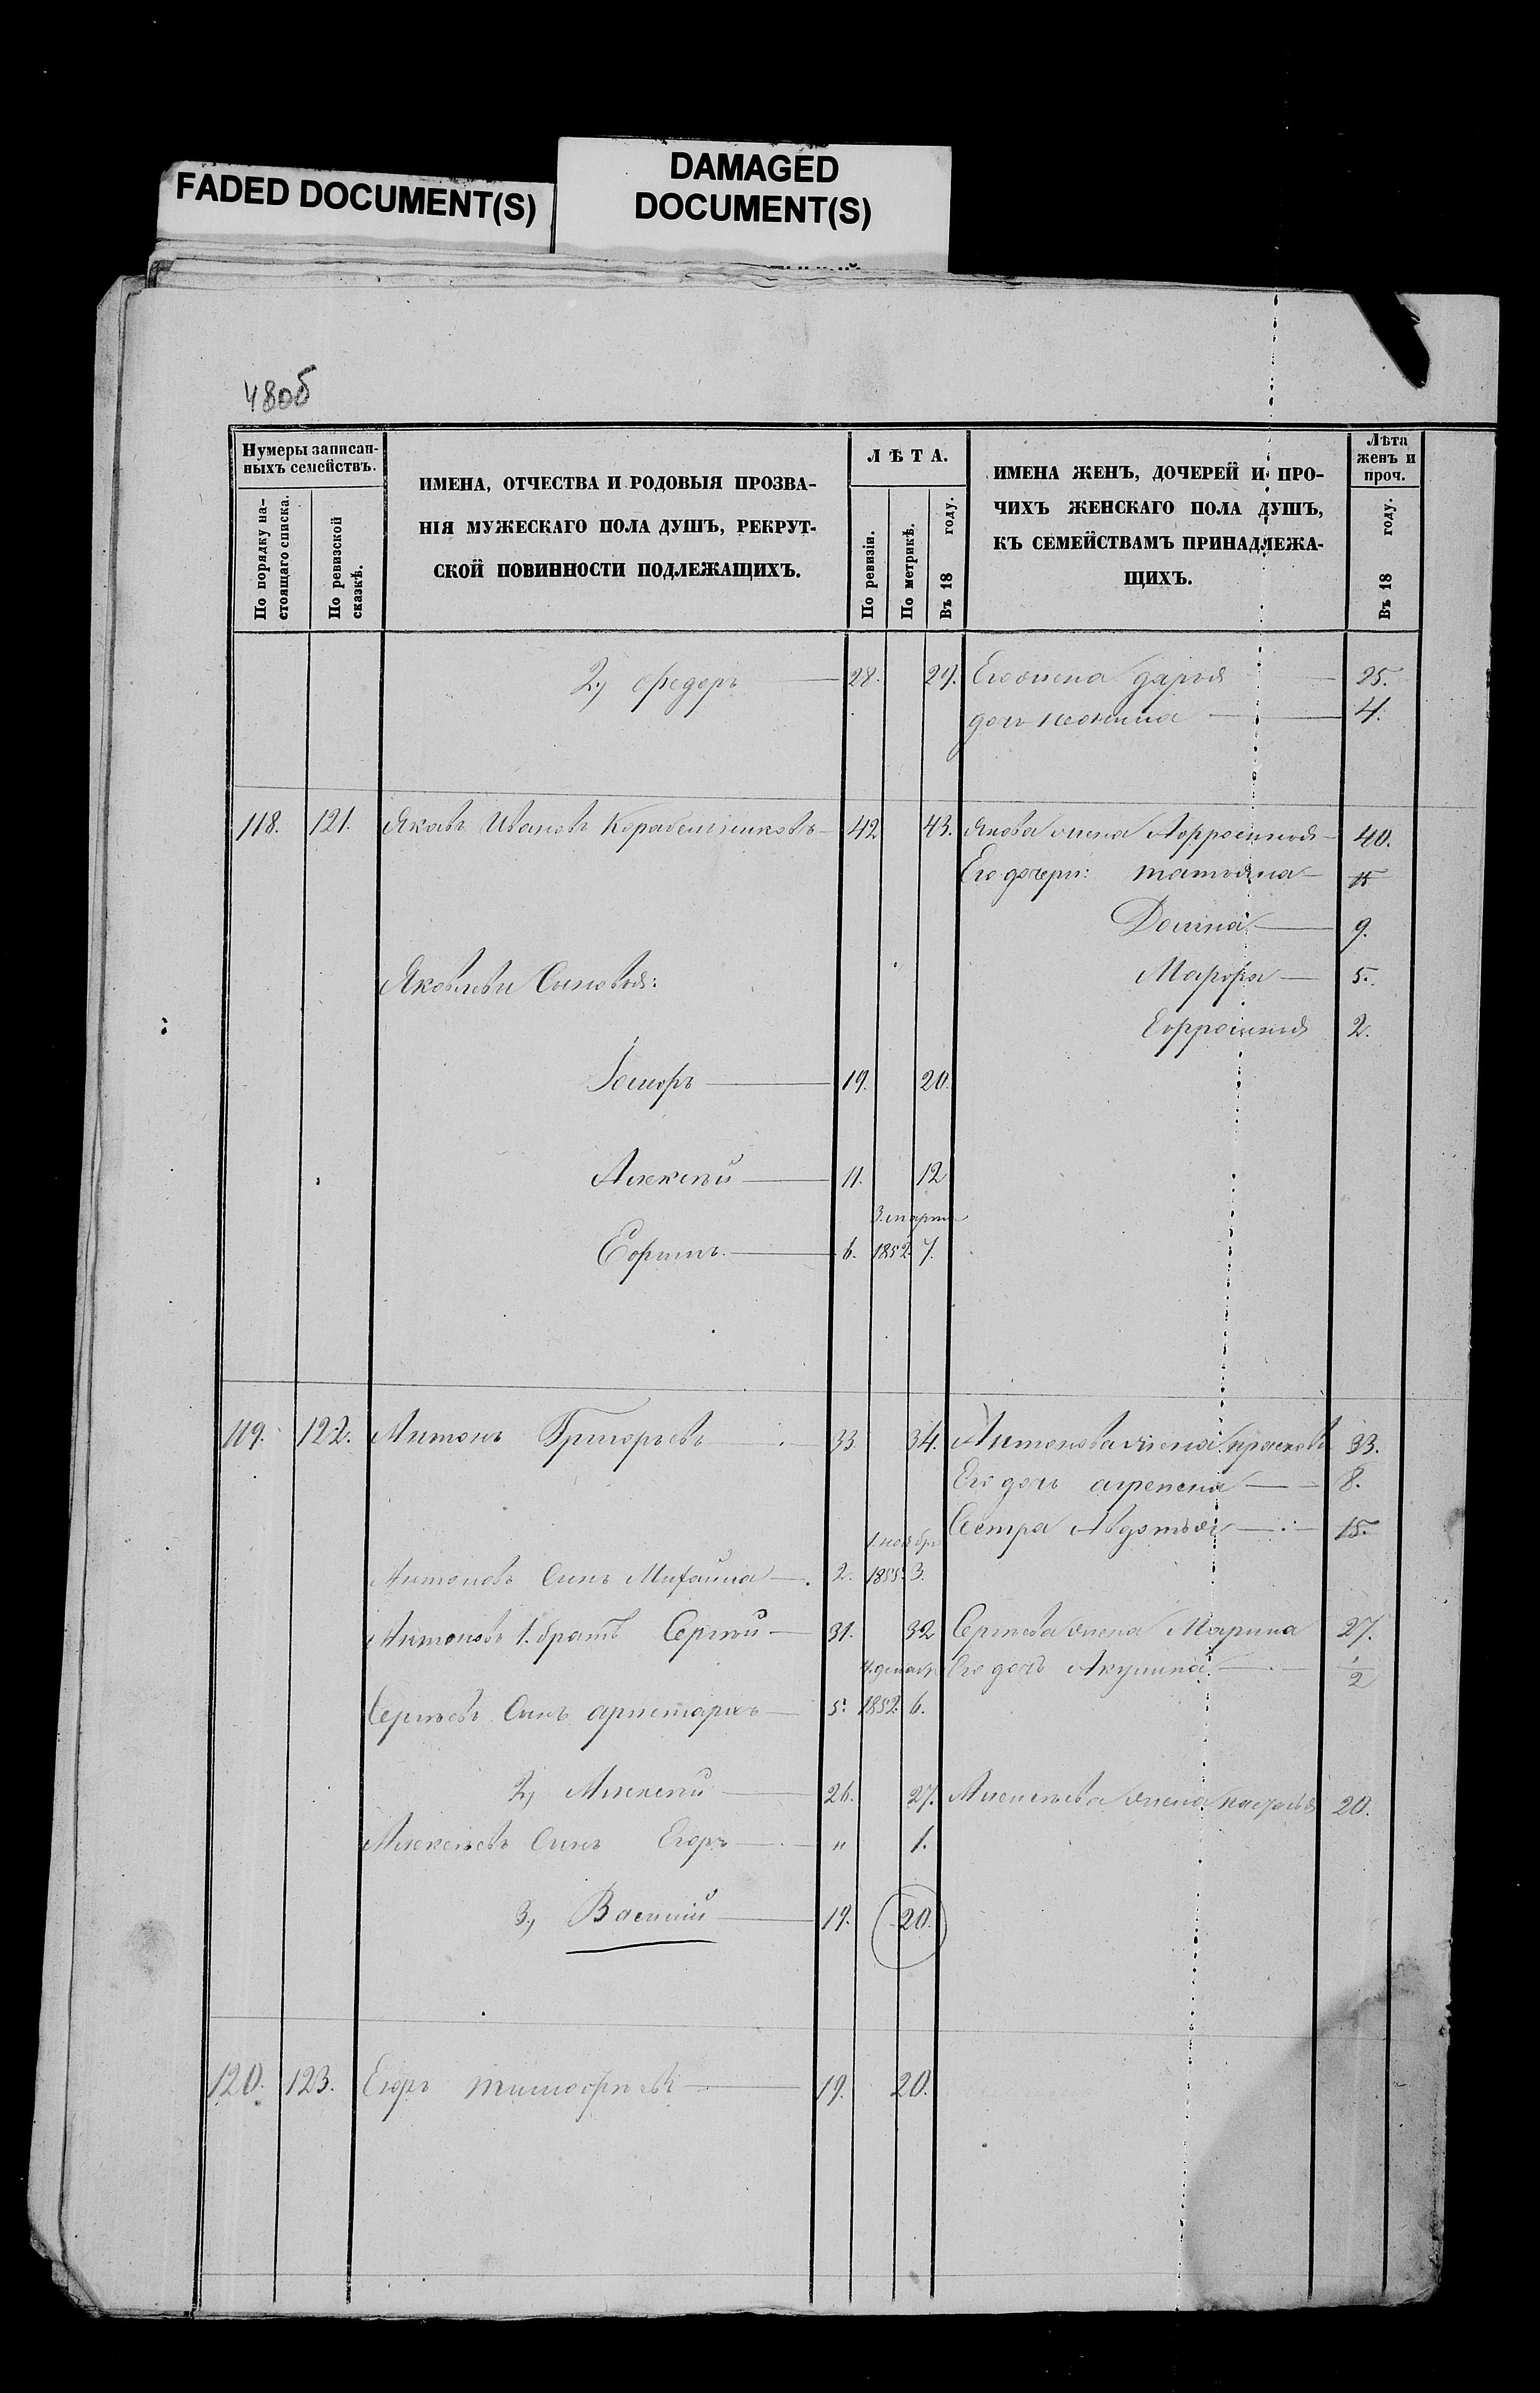 FADED DOCUMENT(S)
DAMAGED
DOCUMENT(S)
480б
Нумеры записан-
ныхъ семействъ.
По порядку на-
стоящаго списка.
По ревизской
сказкѣ.
ИМЕНА, ОТЧЕСТВА И РОДОВЫЯ ПРОЗВА-
НІЯ МУЖЕСКАГО ПОЛА ДУШЪ, РЕКРУТ-
СКОЙ ПОВИННОСТИ ПОДЛЕЖАЩИХЪ.
ЛѢТА.
По ревизіи.
По метрикѣ.
Въ 18 году.
ИМЕНА ЖЕНЪ, ДОЧЕРЕЙ И ПРО-
ЧИХЪ ЖЕНСКАГО ПОЛА ДУШЪ,
КЪ СЕМЕЙСТВАМЪ ПРИНАДЛЕЖА-
ЩИХЪ.
Лѣта
женъ и
проч.
Въ 18 году.
2, Федоръ 28. 29. Его жена дарья 25.
дочь 4.
118. 121. Яковъ Ивановъ Корабельниковъ 42 43. Якова жена Афросинья 40.
Его дочери: татьяна 15
Домна 9.
Яковлевы Сыновья: Марфа 5.
Ефросинья 2.
19. 20.
Алексѣй 11. 12
3. марта
Ефимъ 6. 1852. 7.
119. 122. Антонъ Григорьевъ 33. 34. Антонова жена прасковья 33.
Его дочь агрепена 8.
Сестра Авдотья 15.
1 ноябр
Антоновъ Сынъ Михайла 2. 1855. 3.
Антоновъ 1. братъ Сергѣй 31. 32 Сергѣева жена Марина 27.
4. декабр Его дочь Акулина 1/2
Сергѣевъ Сынъ аристархъ 5. 1852. 6.
2, Алексѣй 26. 27. Алексѣева жена настасья 20.
Алексѣевъ Сынъ Егоръ " 1.
3, Василій 19. 20.
120. 123. Егоръ тимофѣевъ 19. 20.